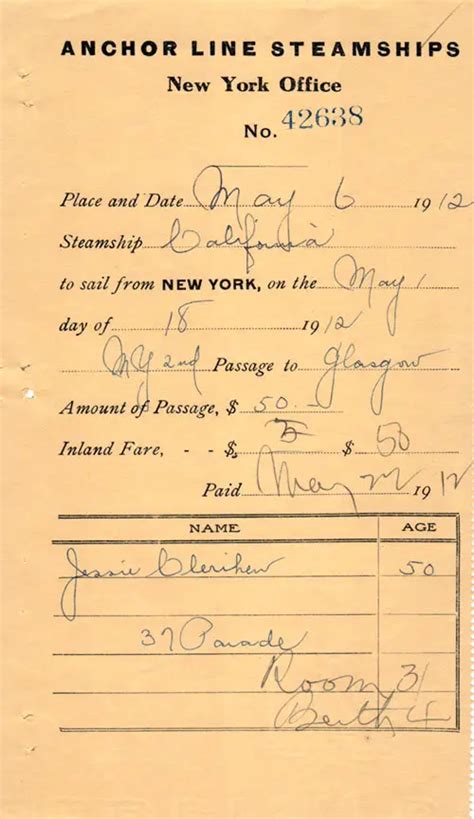 ANCHOR LINE STEAMSHIPS
New York Office
No. 42638
Place and Date May 6 1912
Steamship California
to sail from NEW YORK, on the May
day of 18 1912
NY 2nd Passage to Glasgow
Amount of Passage, $ 50.-
Inland Fare, - - $ 5 $ 50
Paid May 22 1912
NAME AGE
Jessie Clerihew 50
37 Parade
Room 31
Berth 4